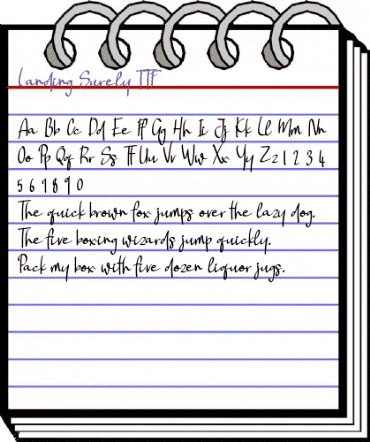 Landing Surely TTF
Aa Bb Cc Dd Ee Ff Gg Hh Ii Jj Kk Ll Mm Nn
Oo Pp Qq Rr Ss Tt Uu Vv Ww Xx Yy Zz 1 2 3 4
5 6 7 8 9 0
The quick brown fox jumps over the lazy dog.
The five boxing wizards jump quickly.
Pack my box with five dozen liquor jugs.